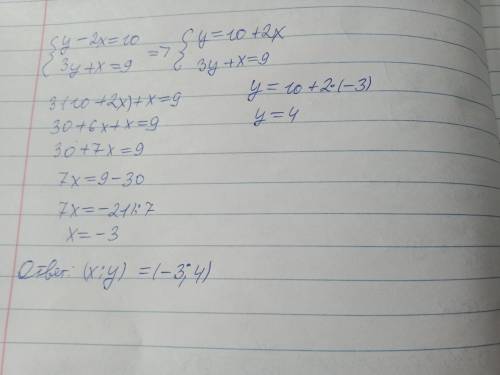 {y-2x=10 => {y=10+2x
{3y+x=9 {3y+x=9
3(10+2x)+x=9
30+6x+x=9
30+7x=9
7x=9-30
7x=-21|:7
x=-3
y=10+2·(-3)
y=4
Ответ: (x;y) =(-3;4)